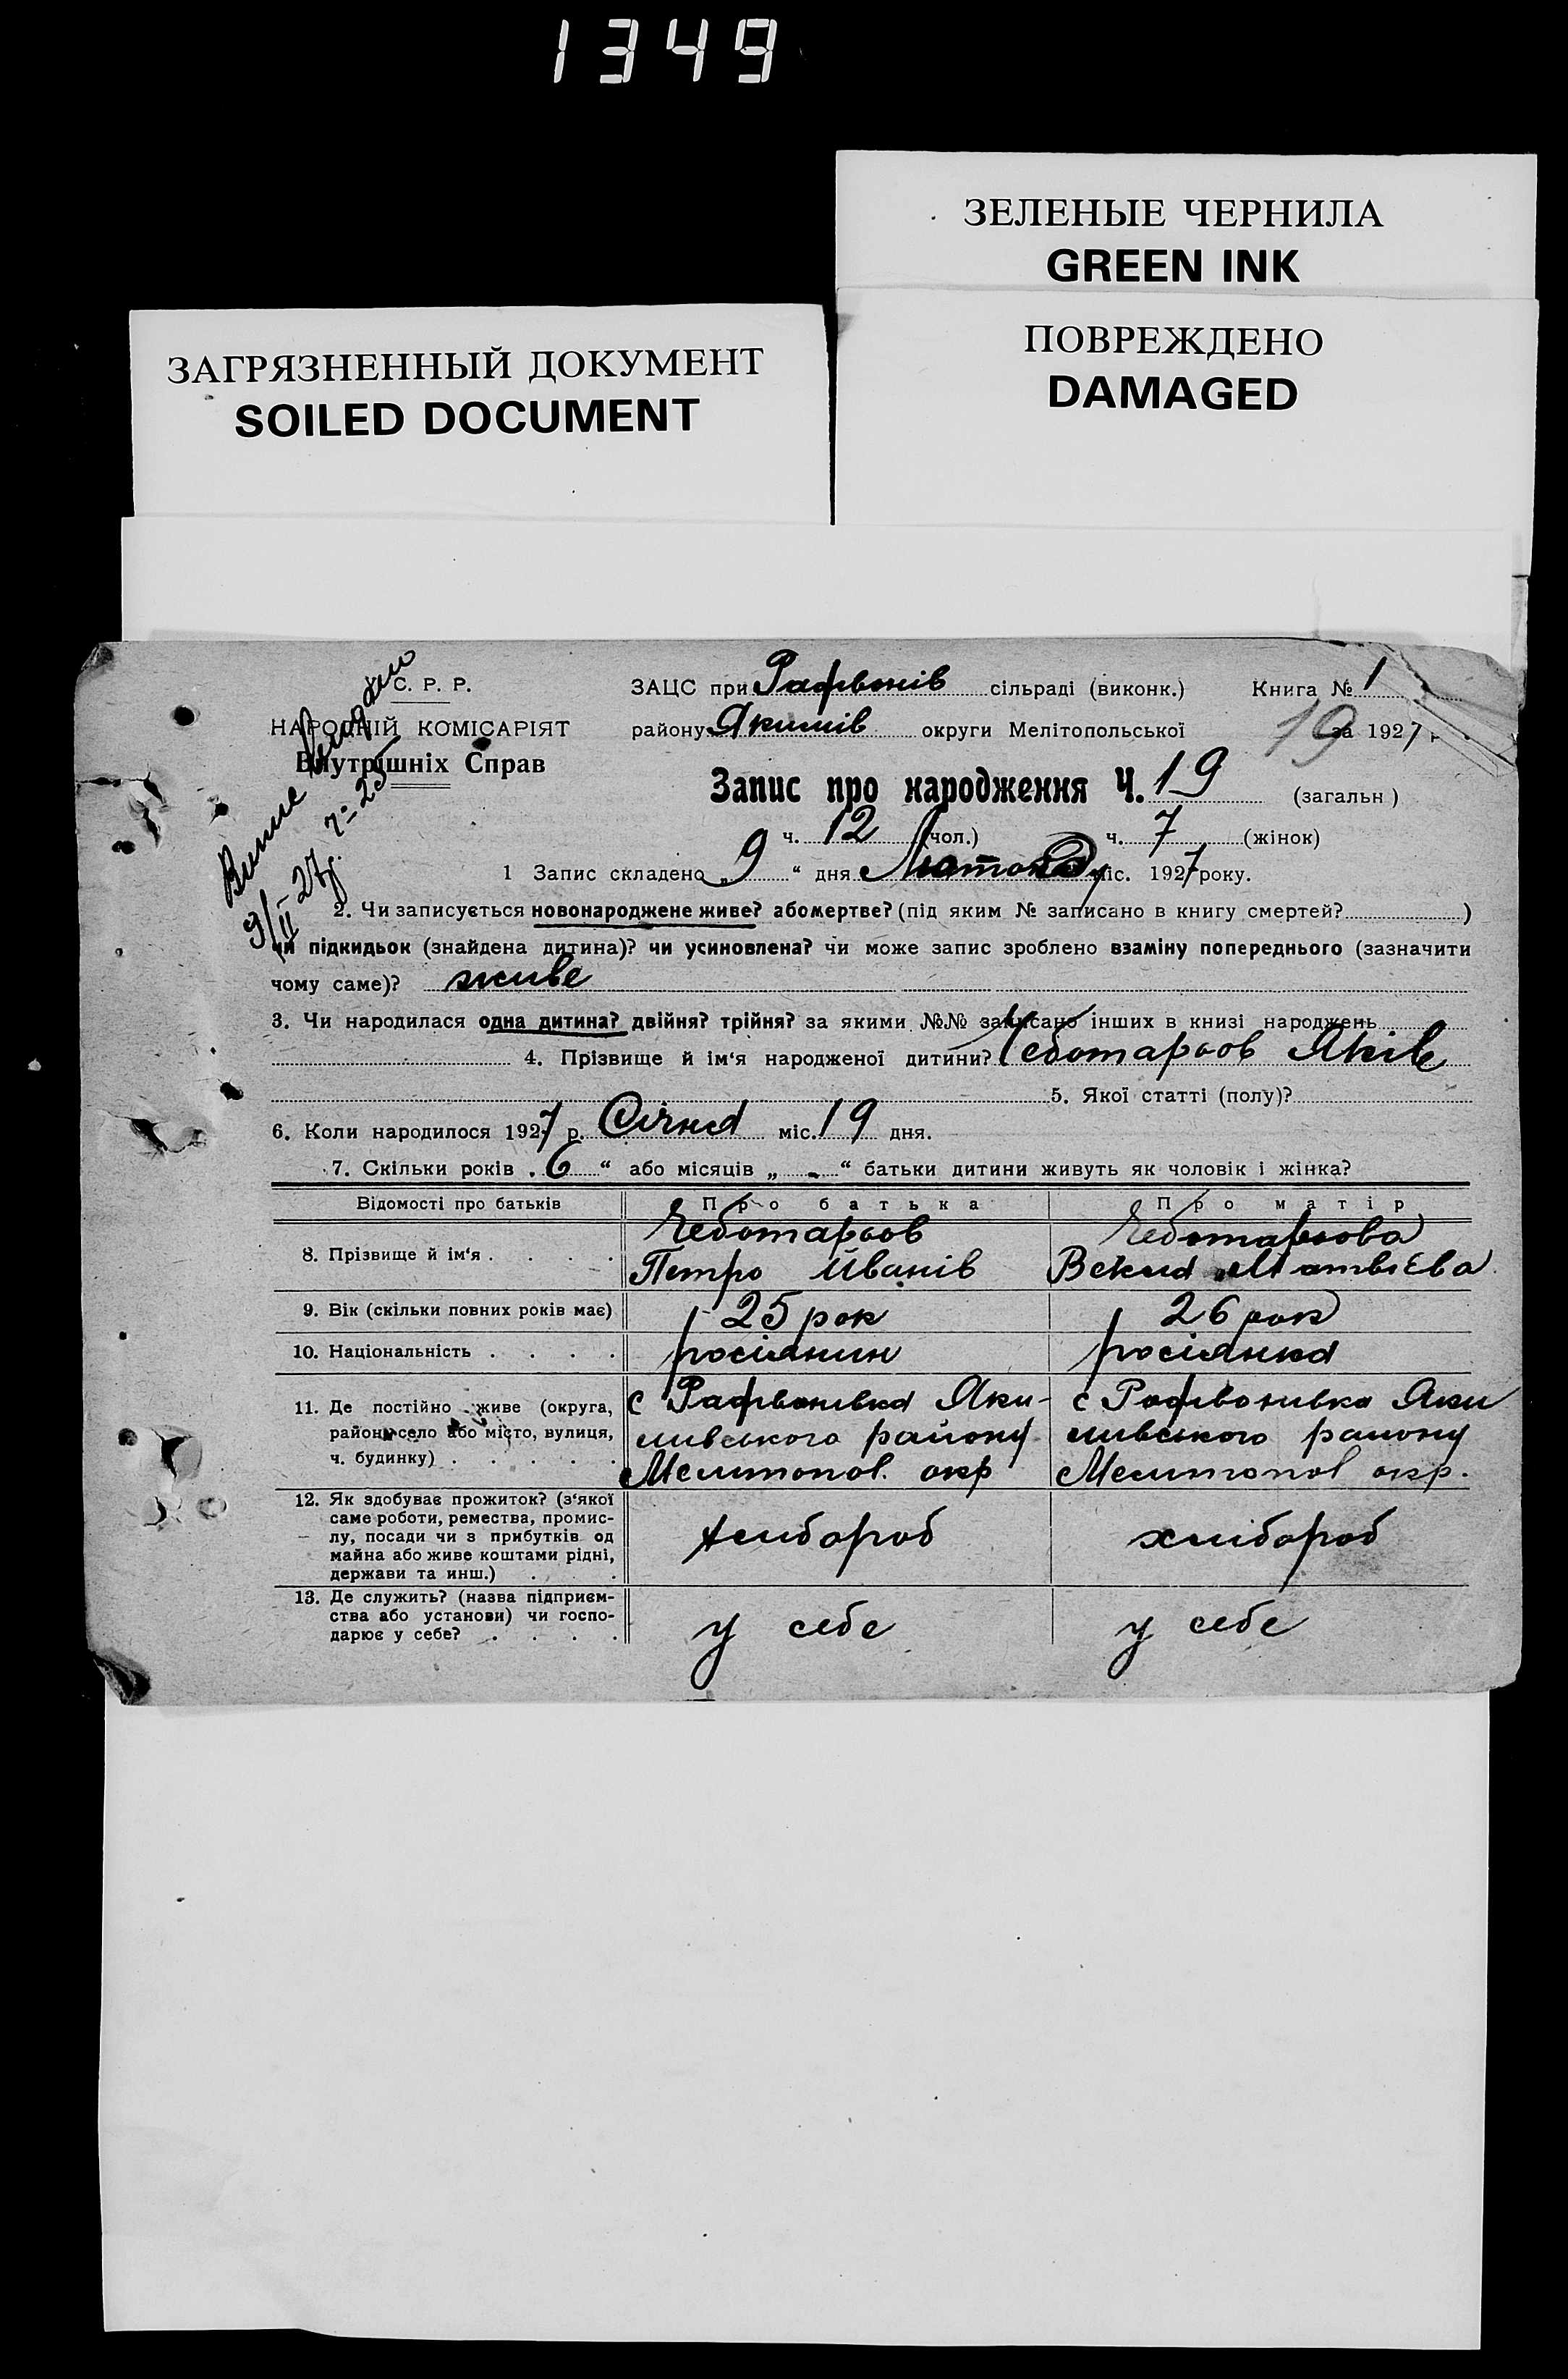 1349
ЗЕЛЕНЫЕ ЧЕРНИЛА
GREEN INK
ПОВРЕЖДЕНО
DAMAGED
ЗАГРЯЗНЕННЫЙ ДОКУМЕНТ
SOILED DOCUMENT
С. Р. Р.
НАРОДНІЙ КОМІСАРІЯТ
Внутрішніх Справ
9/II-27р. №-25
ЗАЦС при Рафвонів сільраді (виконк.) Книга № 1
району Якимів округи Мелітопольської за 1927 р
19
Запис про народження Ч. 19 (загальн)
ч. 12 (чол.) ч. 7 (жінок)
1 Запис складено „ 9 “ дня Лютого міс. 1927 року.
2. Чи записується новонароджене живе? або мертве? (під яким № записано в книгу смертей? )
чи підкидьок (знайдена дитина)? чи усиновлена? чи може запис зроблено взаміну попереднього (зазначити
чому саме)? живе
3. Чи народилася одна дитина? двійня? трійня? за якими №№ записано інших в книзі народжень
4. Прізвище й ім‘я народженої дитини? Чеботарьов Яків
5. Якої статті (полу)?
6. Коли народилося 1927 р. Січня міс. 19 дня.
7. Скільки років „ 6 “ або місяців „ - “ батьки дитини живуть як чоловік і жінка?
Відомості про батьків Про батька Про матір
8. Прізвище й ім‘я . . . . Чеботарьов Чеботарьова
Петро Иванів Векла Матвієва
9. Вік (скільки повних років має) 25 рок 26 рок
10. Національність . . . . росіянин росіянка
11. Де постійно живе (округа, с Рафвонивка Яки- с Рафвонивка Яки
район, село або місто, вулиця, мивського району мивського району
ч. будинку) . . . . . Мелитопол. окр Мелитопол окр.
12. Як здобуває прожиток? (з‘якої
саме роботи, ремества, промис-
лу, посади чи з прибутків од хлибороб хлібороб
майна або живе коштами рідні,
держави та инш.) . .
13. Де служить? (назва підприєм-
ства або установи) чи госпо- у себе у себе
дарює у себе? . . . .